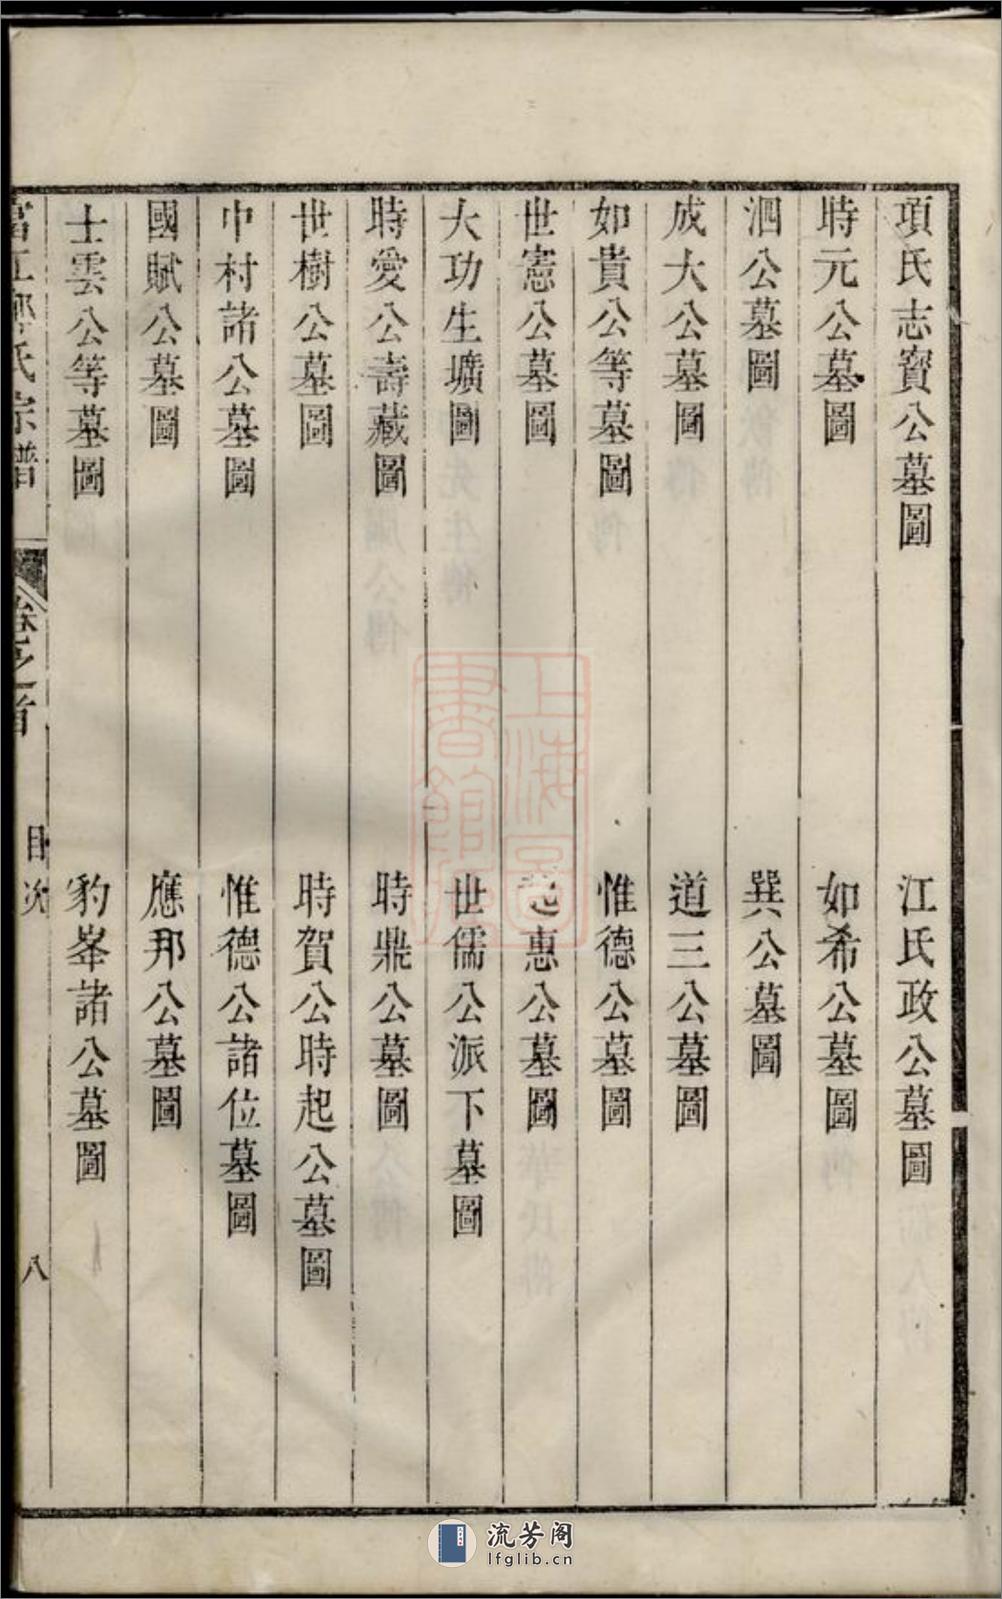 項氏志寶公墓圖
江氏政公墓圖
時元公墓圖
如希公墓圖
泗公墓圖
巽公墓圖
成大公墓圖
道三公墓圖
如貴公等墓圖
惟德公墓圖
世憲公墓圖
惠公墓圖
大功生壙圖
世儒公派下墓圖
時愛公壽藏圖
時鼎公墓圖
世樹公墓圖
時賀公時起公墓圖
中村諸公墓圖
惟德公諸位墓圖
國賦公墓圖
應邦公墓圖
士雲公等墓圖
豹峯諸公墓圖
氏宗譜
卷之首
目次
八
上海圖書館藏
流芳阁
lfglib.cn